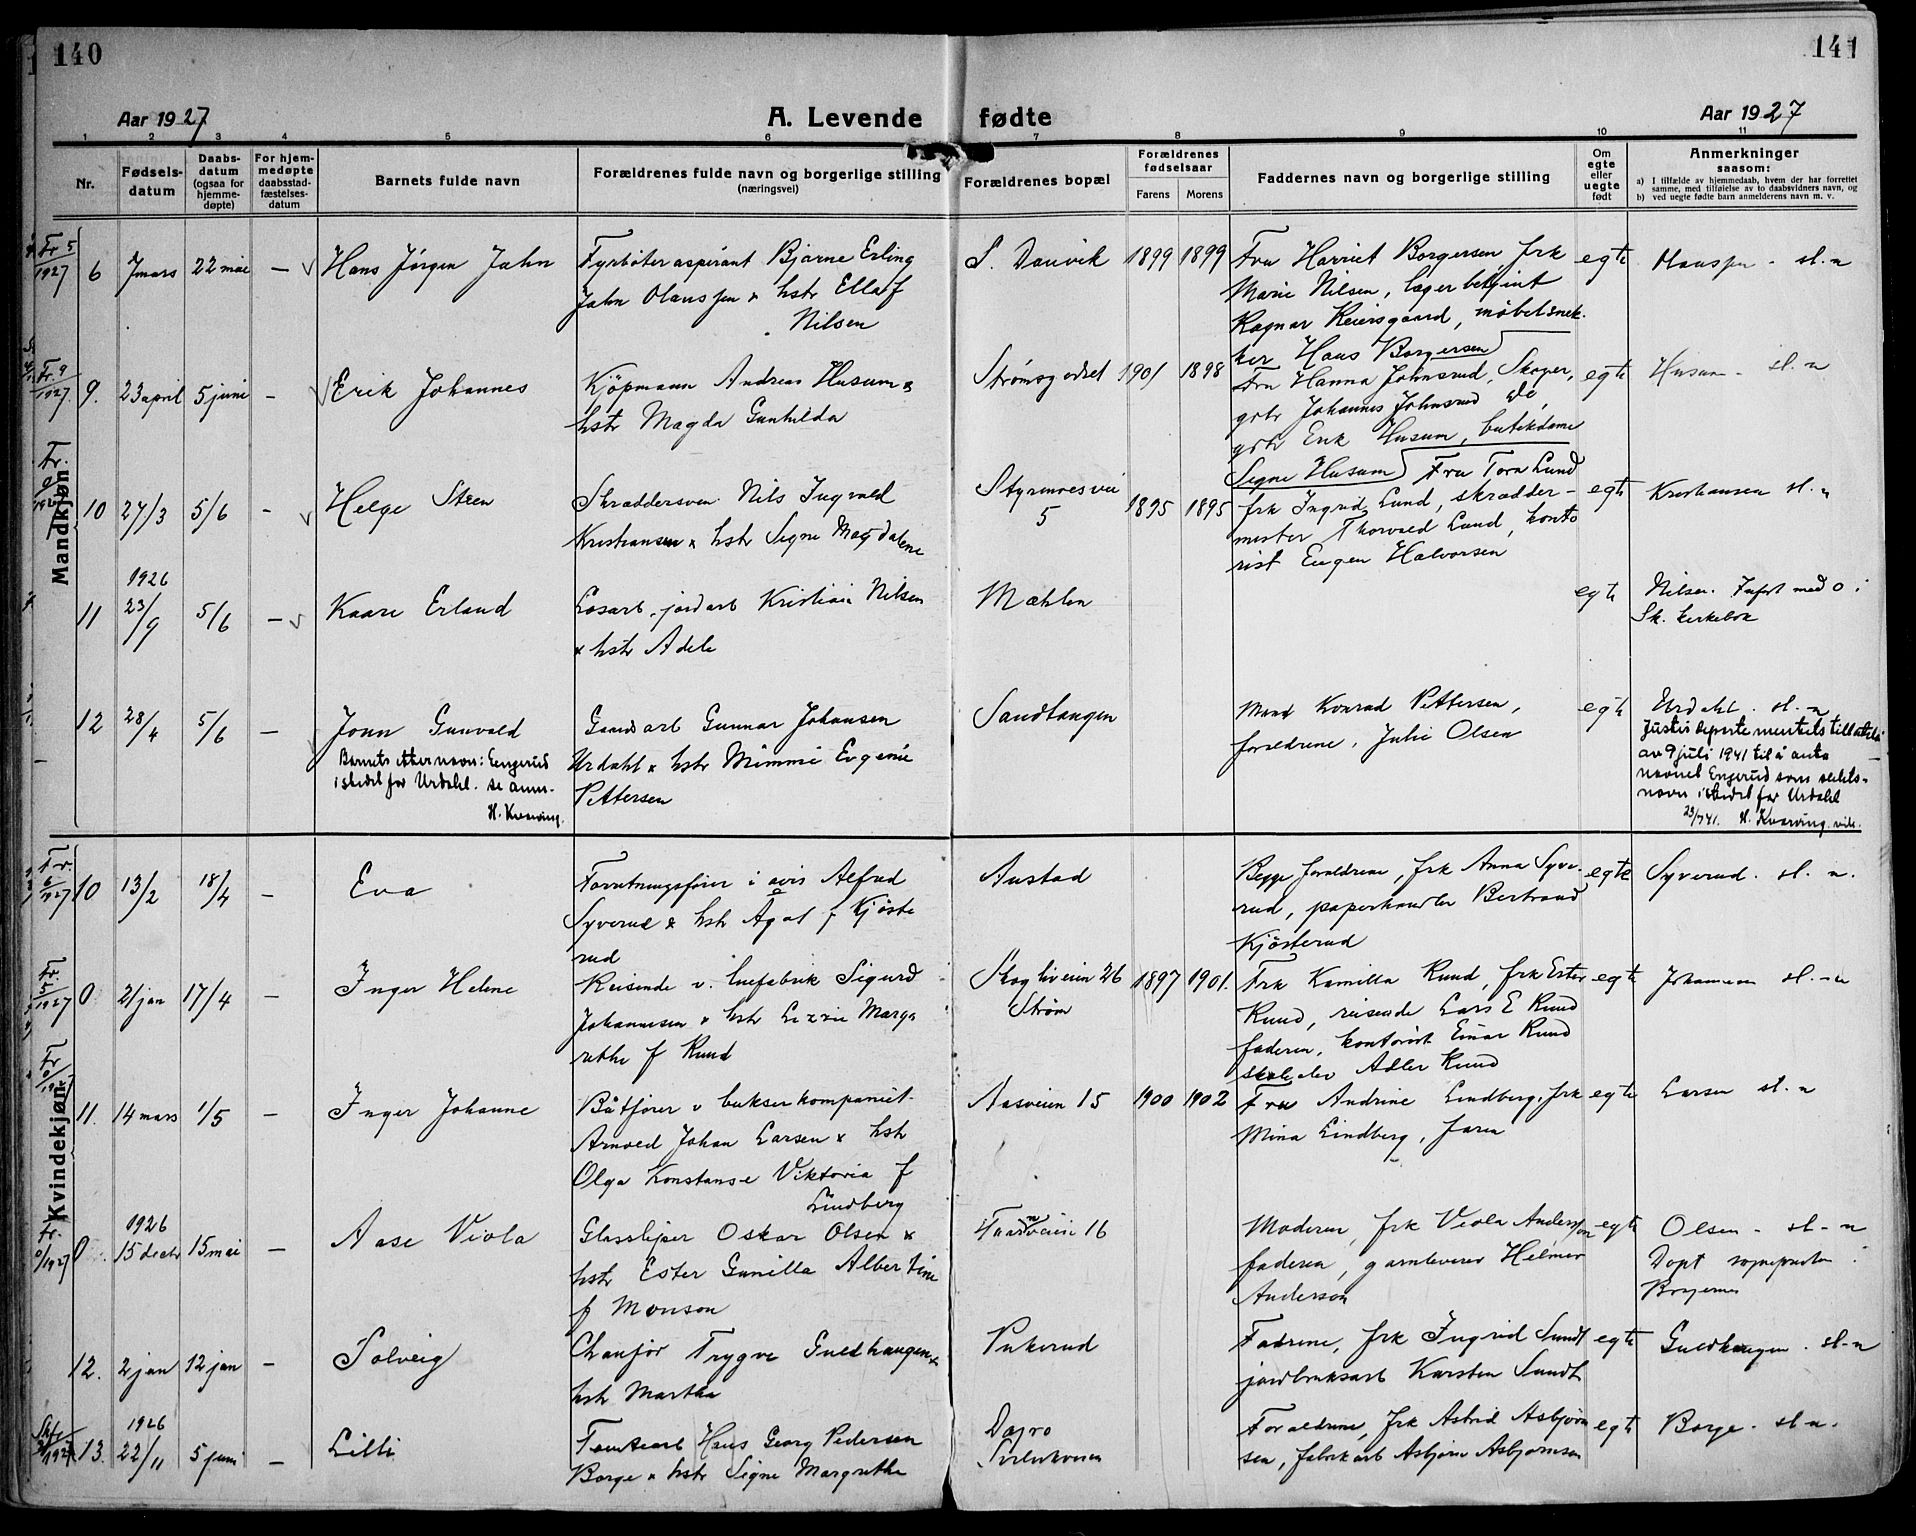 140
141
Aar 1927
A. Levende fødte
Aar 1927
1 2 3 4 5 6 7 8 9 10 11
Nr.
Fødsels-
datum
Daabs-
datum
(ogsaa for
hjemme-
døpte)
For hjem-
medøpte
daabsstad-
fæstelses-
datum
Barnets fulde navn
Forældrenes fulde navn og borgerlige stilling
(næringsvei)
Forældrenes bopæl
Forældrenes
fødselsaar
Farens Morens
Faddernes navn og borgerlige stilling
Om
egte
eller
uegte
født
Anmerkninger
saasom:
a) I tilfælde av hjemmedaab, hvem der har forrettet
samme, med tilføielse av to daabsvidners navn, og
b) ved uegte fødte barn anmelderens navn m. v.
Mandkjøn
Fr. 5
1927
6 7 mars 22 mai — Hans Jørgen Jahn
Fyrbøteraspirant Bjarne Erling
Jahn Olaussen & hstr Ella f
Nilsen
S. Danvik 1899 1899
Fru Harriet Borgersen frk
Marie Nilsen, lagerbetjent
Ragnar Reiersgaard, møbelsnek-
ker Hans Borgersen
egte
Olaussen - sl. n
Fr. 9
1927.
9. 23 april 5 juni - Erik Johannes
Kjöpmann Andreas Husum &
hstr Magda Gunhilda
Strømsgodset 1901 1898
Fru Hanna Johnsrud, Skoger,
gbr Johannes Johnsrud do,
gbr Erik Husum, butikdame
Signe Husum
egte
Husum - sl. n
Fr.
10 27/3 5/6 - Helge Steen
Skræddersven Nils Ingvald
Kristiansen & hstr Signe Magdalene
Styrmoesvei
5
1895 1895
Fru Tora Lund
frk Ingrid Lund, skrædder-
mester Thorvald Lund, konto
rist Eugen Halvorsen
egte
Kristiansen sl. n
11 1926
23/9 5/6 - Kaare Erland
Losarb, jordarb Kristian Nilsen
& hstr Adele
Mæhlen
egte
Nilsen. Infört med 0 i
Sk. kirkebok
12 28/4 5/6 - Jonn Gunvald
Barnets etternavn: Engerud
istedet for Urdahl. se anm.
H. Kvarving.
Grundarb Gunnar Johansen
Urdahl & hstr Mimmi Evgenie
Pettersen
Sandtangen
Mand Konrad Pettersen,
forældrene, Julie Olsen
egte
Urdahl. sl. n
Justisdepartementets tillatelse
av 9 juli 1941 til å anta
navnet Engerud som slekts-
navn istedet for Urdahl
23/7 41. H. Kvarving. vik.
Kvindekjøn
Fr.
6
1927
10 13/2 18/4 - Eva
Forretningsfører i avis Alfred
Syverud & hstr Ågot f Kjöste
rud
Austad
Begge forældrene, frk Anna Syve-
rud, papirhandler Bertrand
Kjösterud
egte
Syverud. sl. n.
Fr.
5
1927
0 21 jan 17/4 - Inger Helene
Reisende v. luefabrik Sigurd
Johannesen & hstr Lizzie Marga
rethe f Ruud
Skogliveien 26
Strøm
1897 1901.
Frk Kamilla Ruud, frk Ester
Ruud, reisende Lars E Ruud
faderen, kontorist Einar Ruud
skoleelev Adler Ruud
egte
Johannesen sl. n
Fr
11. 14 mars 1/5 - Inger Johanne
Båtfører v bukserkompaniet.
Arnold Johan Larsen & hstr
Olga Konstanse Viktoria f
Lindberg
Aasveien 15 1900 1902
Fru Andrine Lindberg, frk
Mina Lindberg, faren
egte
Larsen sl. n
Fr.
0/1927
0 1926
15 decbr 15 mai — Aase Viola
Glassliper Oskar Olsen &
hstr Ester Gunilla Albertine
f Monson
16
Moderen, frk Viola Anderson
faderen, garnleverer Helmer
Anderson
egte
Olsen - sl - n
Døpt sogneprester i
Borgernes
12. 2 jan 12 jan - Solveig
Chaufør Trygve Guldhaugen &
hstr Martha
Pukerud
Fadrene, frk Ingrid Sundt
jordbruksarb Karsten Sundt
egte
Guldhaugen. sl-n
13. 1926
22/11 5 juni - Lilli
Tomtearb Hans Georg Pedersen
Borge & hstr Signe Margrethe
Forældrene, frk Astrid Asbjørn
sen, fabrikarb Asbjørn Asbjørnsen
egte
Borge - sl. n.